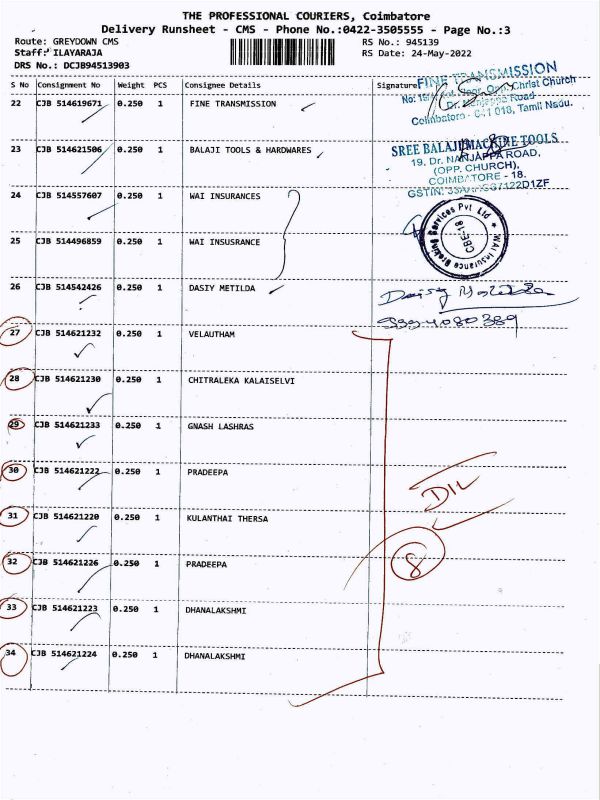 THE PROFESSIONAL COURIERS, Coimbatore
Delivery Runsheet - CMS - Phone No.:0422-3505555 - Page No.:3
Route: GREYDOWN CMS RS No.: 945139
Staff: ILAYARAJA RS Date: 24-May-2022
DRS No.: DCJB94513903
S No Consignment No Weight PCS Consignee Details Signature
22 CJB 514619671 0.250 1 FINE TRANSMISSION
FINE TRANSMISSION
Christ Church
Dr. Nanjappa Road
Coimbatore - 641 018, Tamil Nadu.
23 CJB 514621506 0.250 1 BALAJI TOOLS & HARDWARES
SREE BALAJI MACHINE TOOLS
19, Dr. NANJAPPA ROAD,
(OPP. CHURCH),
COIMBATORE - 18.
24 CJB 514557607 0.250 1 WAI INSURANCES
WAI Insurance Broking Services Pvt Ltd
CBE-18
25 CJB 514496859 0.250 1 WAI INSUSRANCE
26 CJB 514542426 0.250 1 DASIY METILDA
Daisy
27 CJB 514621232 0.250 1 VELAUTHAM
28 CJB 514621230 0.250 1 CHITRALEKA KALAISELVI
29 CJB 514621233 0.250 1 GNASH LASHRAS
30 CJB 514621222 0.250 1 PRADEEPA
31 CJB 514621220 0.250 1 KULANTHAI THERSA
32 CJB 514621226 0.250 1 PRADEEPA
33 CJB 514621223 0.250 1 DHANALAKSHMI
34 CJB 514621224 0.250 1 DHANALAKSHMI
DIL
8